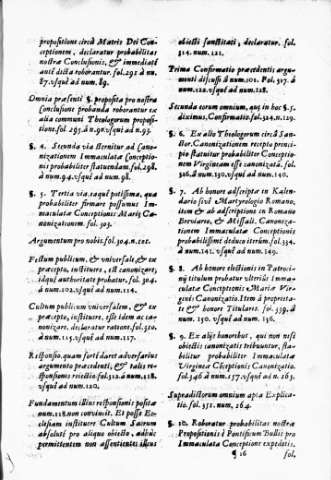 propositionis circà Matris Dei Con-
ceptionem, declaratur probabilitas
nostræ Conclusionis, & immediatè
antè dicta roborantur. fol. 293. à nu.
87. vsquè ad num. 89.
Omnia præsenti §. proposita pro nostra
conclusione probanda roborantur ex
alia communi Theologorum proposi-
tione. fol. 295. à n. 90. vsquè ad n. 93.
§. 4. Secunda via sternitur ad Cano-
nizationem Immaculatæ Conceptio-
nis probabiliter statuendam. fol. 298.
à num. 94. vsquè ad num. 98.
§. 5. Tertia via, eaquè potissima, qua
probabiliter firmare possumus Im-
maculatæ Conceptionis Mariæ Ca-
nonizationem. fol. 303.
Argumentum pro nobis. fol. 304. n. 101.
Festum publicum, & vniversale ex
præcepto, instituere, est canonizare,
idquè authoritate probatur. fol. 304.
à num. 102. vsquè ad num. 114.
Cultum publicum vniversalem, & ex
præcepto, instituere, esse idem ac ca-
nonizare, declaratur ratione. fol. 310.
à num. 115. vsquè ad num. 117.
Responsio, quam forte daret adversarius
argumento præcedenti, & talis re-
sponsionis reiectio. fol. 312. à num. 118.
vsquè ad num. 120.
Fundamentum illius responsionis positæ
num. 118. non convincit. Et posse Ec-
clesiam instituere Cultum Sacrum
absolutè pro aliquo obiecto, adhuc
permittentem non assentientes illius
obiecti sanctitati, declaratur. fol.
314. num. 121.
Prima Confirmatio præcedentis argu-
menti discussi à num. 102. Fol. 317. à
num. 122. vsquè ad num. 128.
Secunda eorum omnium, quæ in hoc §. 5.
diximus, Confirmatio. fol. 324. n. 129.
§. 6. Ex alio Theologorum circà San-
ctor. Canonizationem recepto princi-
pio statuitur probabiliter Conceptio-
nem Virgineam esse canonizatã. fol.
326. à num. 130. vsquè ad num. 140.
§. 7. Ab honore adscripto in Kalen-
dario sivè Martyrologio Romano,
item & ab adscriptione in Romano
Breviario, & Missali, Canoniza-
tionem Immaculatæ Conceptionis
probabilissimè deduco iterùm. fol. 334.
à num. 141. vsquè ad num. 149.
§. 8. Ab honore electionis in Patroci-
nij titulum probatur vlteriùs Imma-
culatæ Conceptionis Mariæ Vir-
ginis Canonizatio. Item à proprieta-
te & honore Titulari. fol. 339. à
num. 150. vsquè ad num. 156.
§. 9. Ex alijs honoribus, qui non nisi
obiectis canonizatis tribuuntur, sta-
bilitur probabiliter Immaculatæ
Virgineæ Cõceptionis Canonizatio.
fol. 346. à num. 157. vsquè ad n. 163.
Supradictorum omnium apta Explica-
tio. fol. 351. num. 164.
§. 10. Roboratur probabilitas nostræ
Propositionis è Pontificum Bullis pro
Immaculata Conceptione expeditis.
fol.